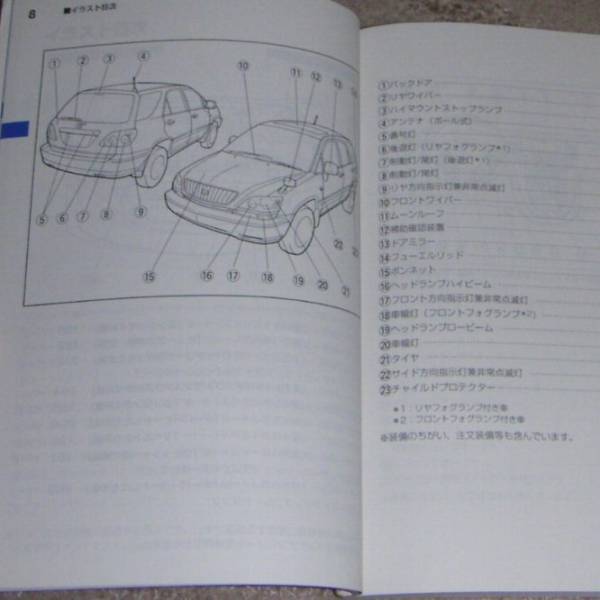 8
■イラスト目次
① ② ③ ④ ⑩ ⑪ ⑫ ⑬
⑤ ⑥ ⑦ ⑧ ⑨
⑮ ⑯ ⑰ ⑱ ⑲ ⑳ ㉑ ㉒
①バックドア
②リヤワイパー
③ハイマウントストップランプ
④アンテナ（ポール式）
⑤番号灯
⑥後退灯（リヤフォグランプ*1）
⑦制動灯/尾灯（後退灯*1）
⑧制動灯/尾灯
⑨リヤ方向指示灯兼非常点滅灯
⑩フロントワイパー
⑪ムーンルーフ
⑫補助確認装置
⑬ドアミラー
⑭フューエルリッド
⑮ボンネット
⑯ヘッドランプハイビーム
⑰フロント方向指示灯兼非常点滅灯
⑱車幅灯（フロントフォグランプ*2）
⑲ヘッドランプロービーム
⑳車幅灯
㉑タイヤ
㉒サイド方向指示灯兼非常点滅灯
㉓チャイルドプロテクター
*1：リヤフォグランプ付き車
*2：フロントフォグランプ付き車
※装備のちがい、注文装備等も含んでいます。